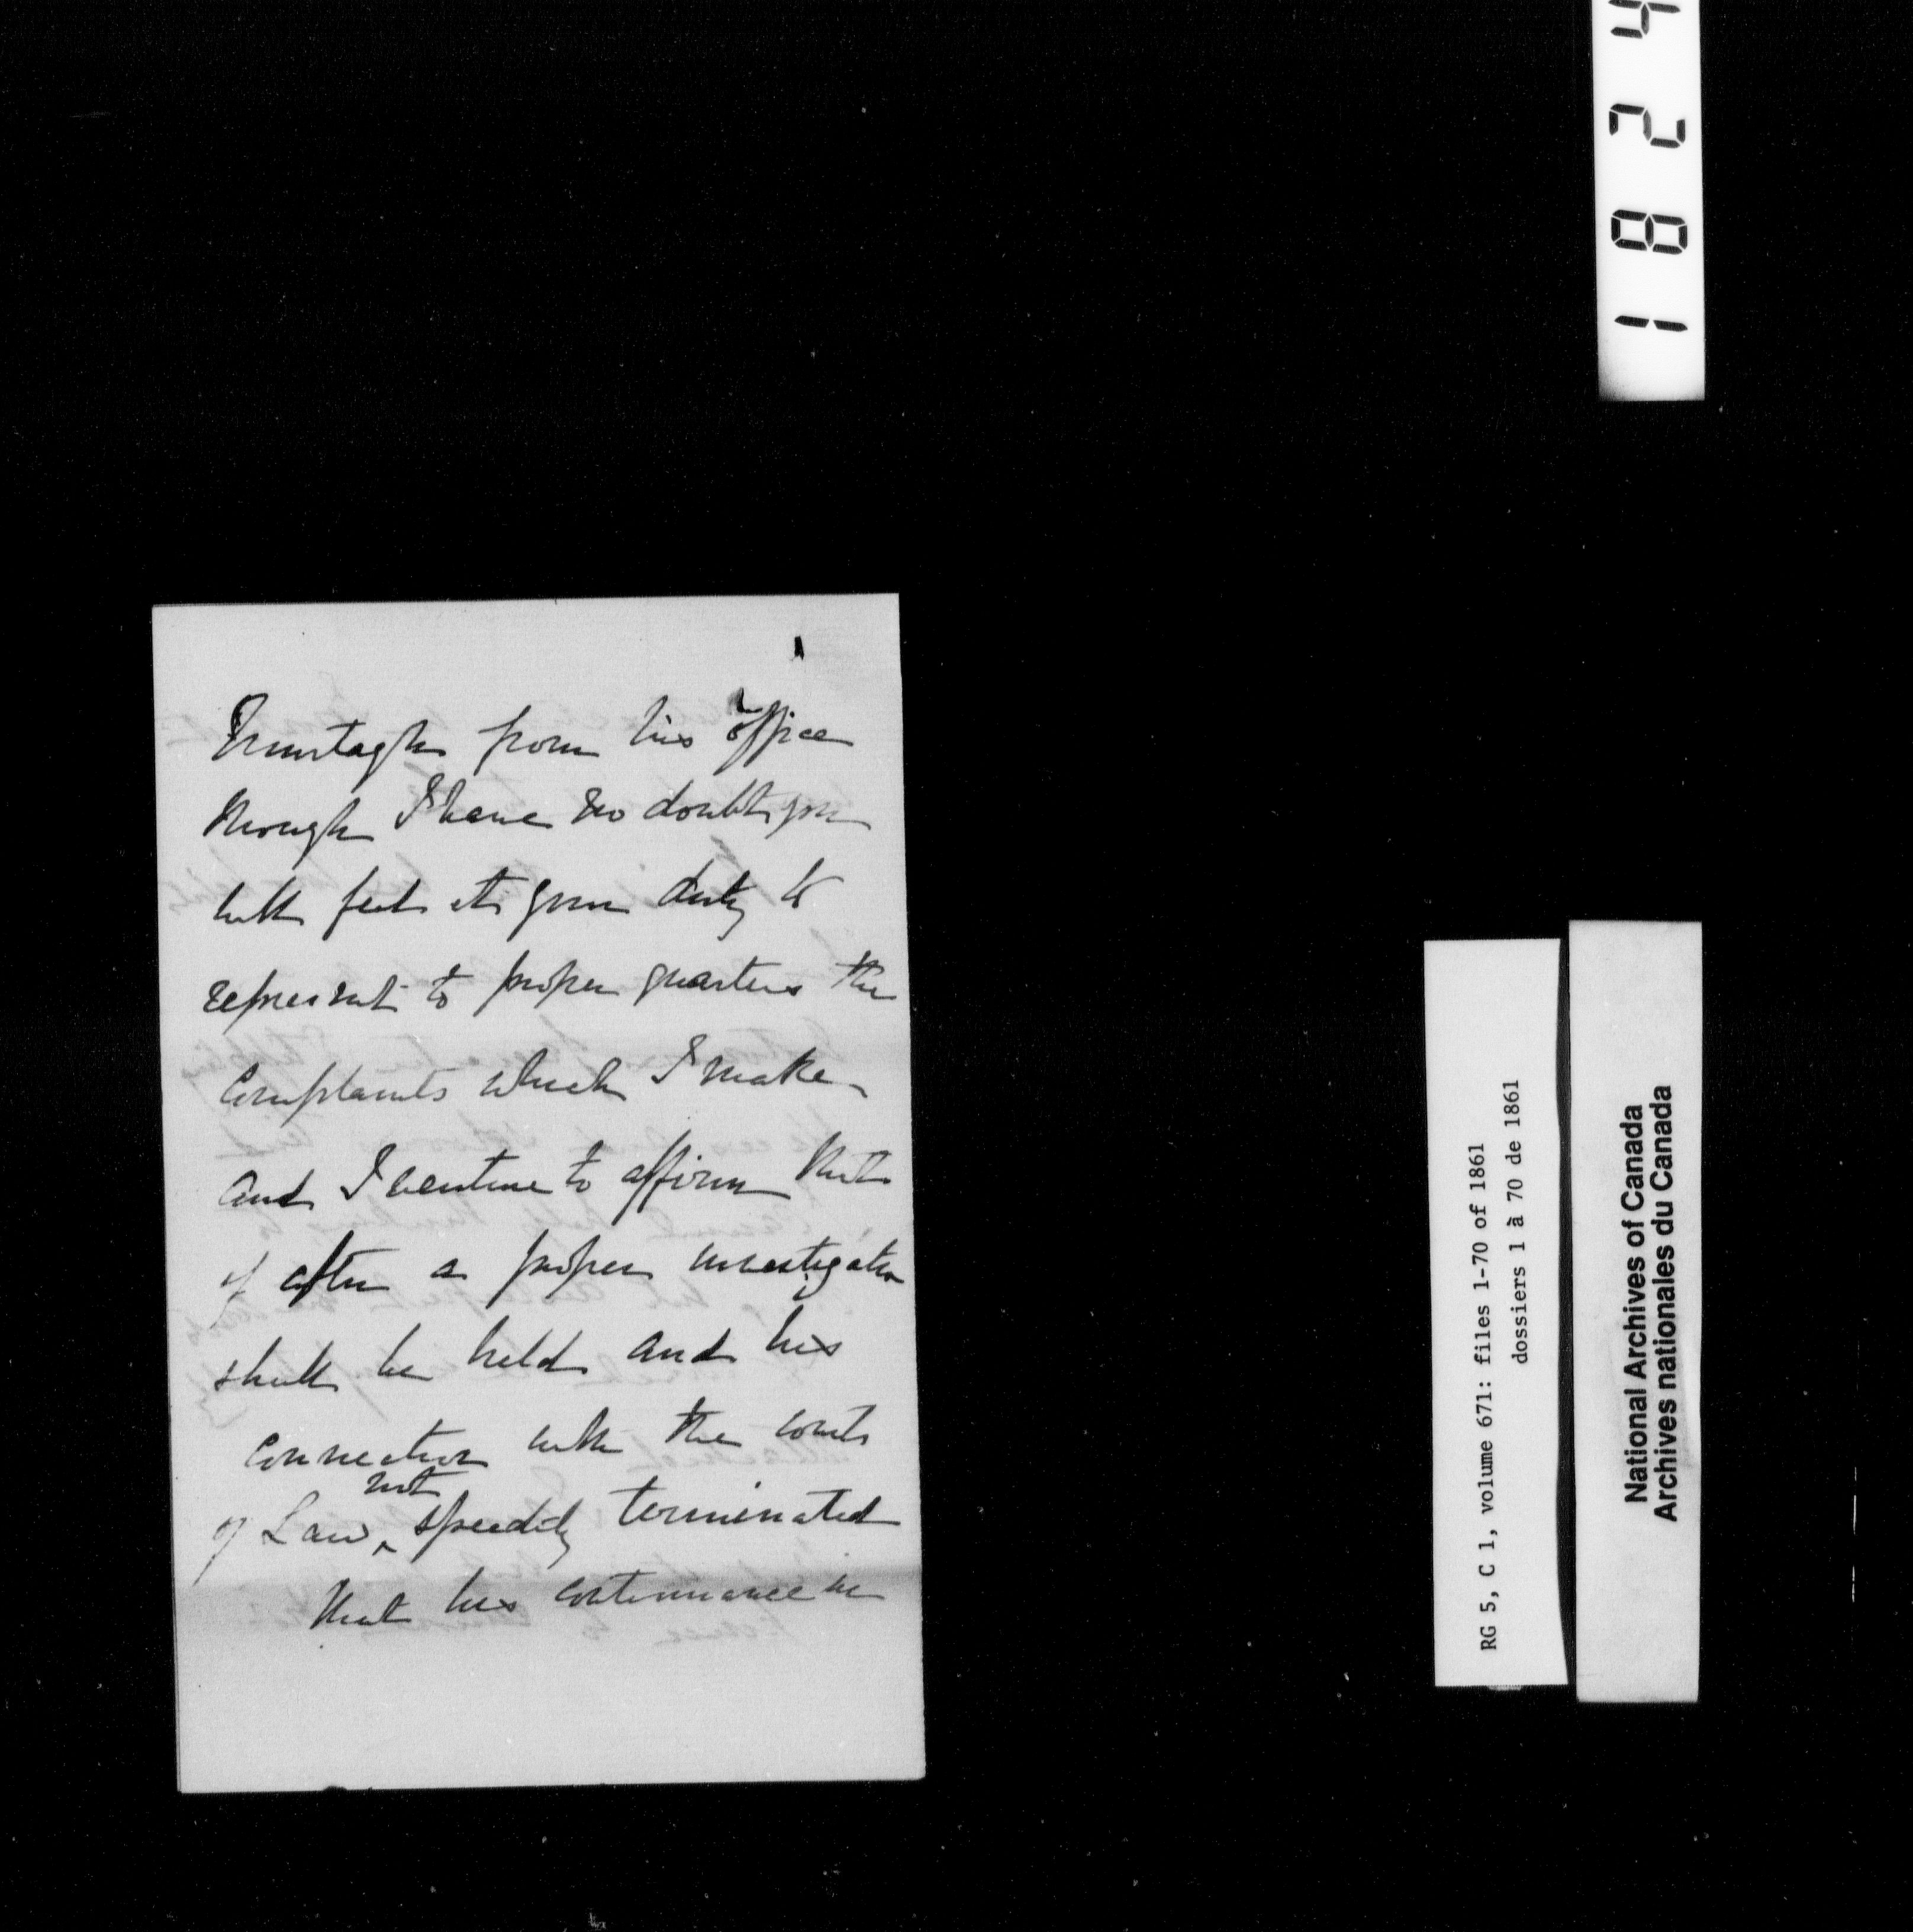 Murtagh from his office
though I have no doubt you
will feel it your duty to
represent to proper quarters the
Complaints which I make
and I venture to affirm that
if after a proper investigation
shall be held and his
Connection with the courts
not
of Law, speedily terminated
that his continuance in
1 8 2 4
RG 5, C 1, volume 671: files 1-70 of 1861
dossiers 1 à 70 de 1861
National Archives of Canada
Archives nationales du Canada